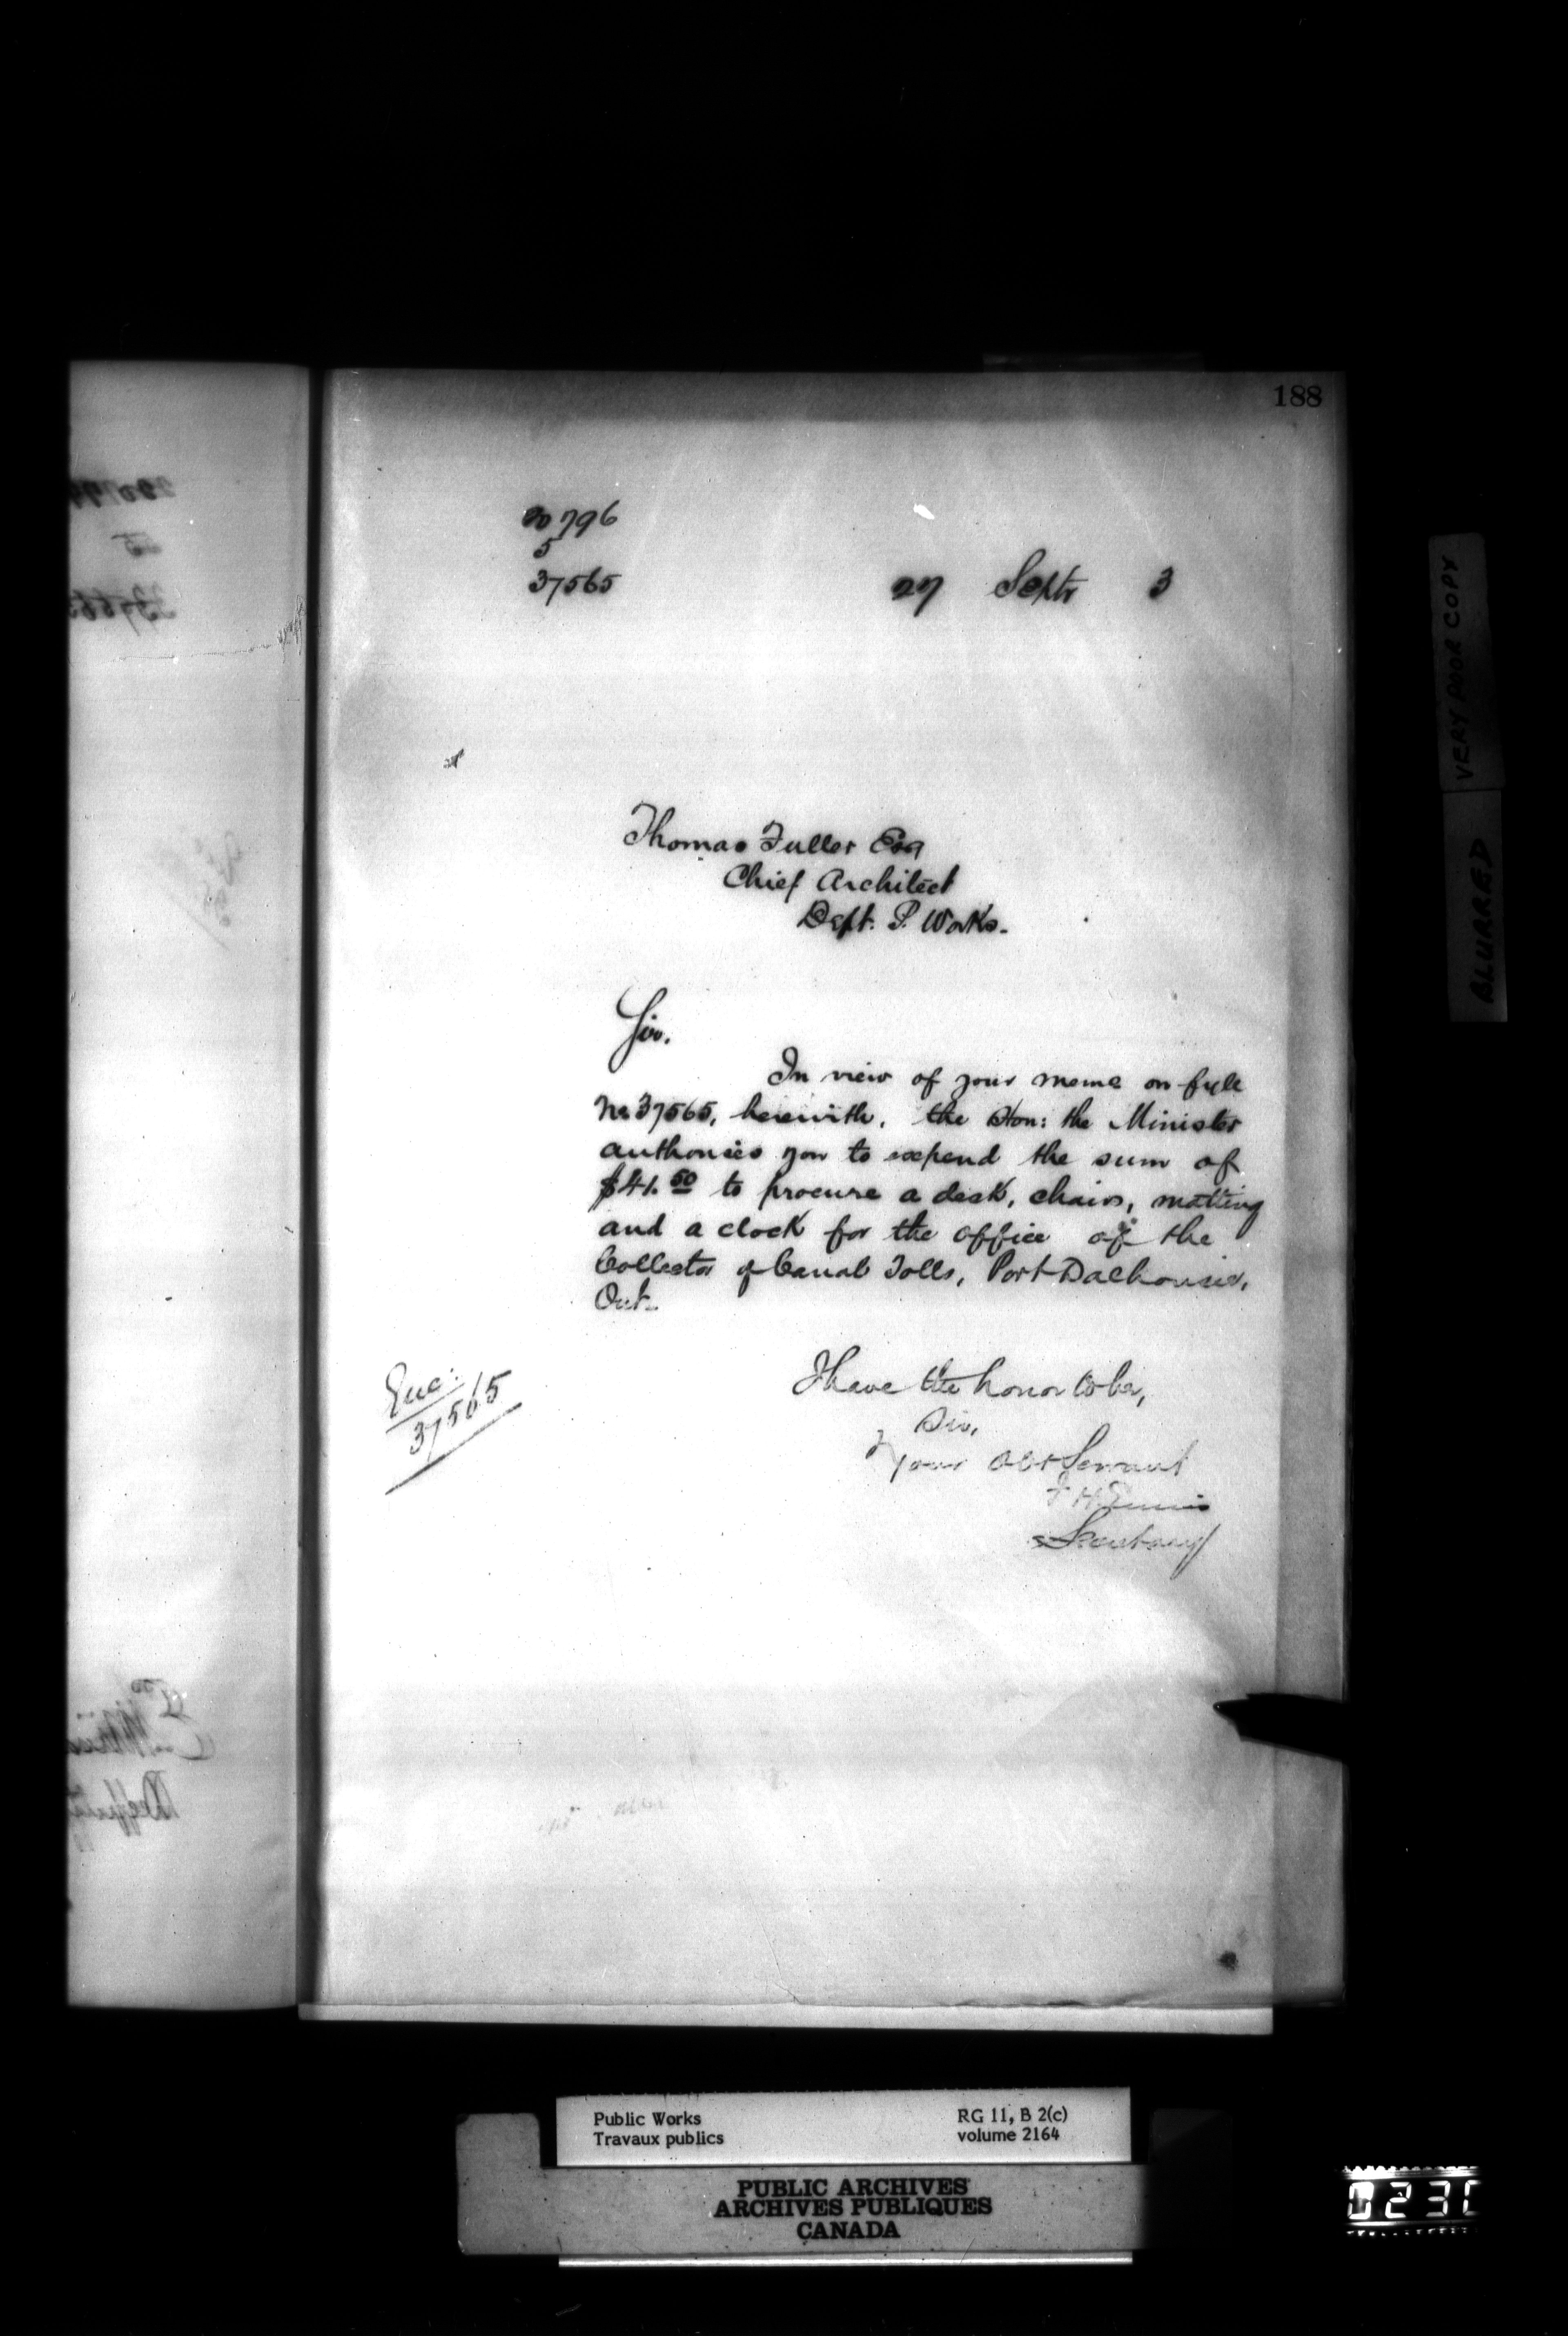 188
20796
5
37565
27 Septr 3
Thomas Fuller Esq
Chief Architect
Dept. P. Works.
Sir.
In view of your memo on fyle
No 37565, herewith, the Hon: the Minister
authorises you to expend the sum of
$41.50 to procure a desk, chairs, matting
and a clock for the office of the
Collector of Canal Tolls, Port Dalhousie,
Ont.
Enc:
37565
I have the honor to be,
Sir,
Your Obt Servant
F H Ennis
Secretary
VERY POOR COPY
BLURRED
Public Works
Travaux publics
RG 11, B 2(c)
volume 2164
PUBLIC ARCHIVES
ARCHIVES PUBLIQUES
CANADA